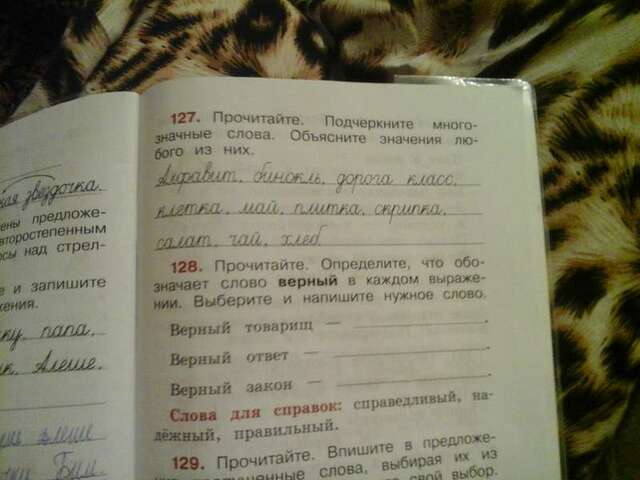 ная звёздочка.
ены предложе-
второстепенным
сы над стрел-
е и запишите
жения.
ку, папа,
ик, Алеше.
127. Прочитайте. Подчеркните много-
значные слова. Объясните значения лю-
бого из них.
Алфавит, бинокль, дорога, класс,
клетка, май, плитка, скрипка,
салат, чай, хлеб
128. Прочитайте. Определите, что обо-
значает слово верный в каждом выраже-
нии. Выберите и напишите нужное слово.
Верный товарищ —
Верный ответ —
Верный закон —
Слова для справок: справедливый, на-
дёжный, правильный.
129. Прочитайте. Впишите в предложе-
слова, выбирая их из
свой выбор.